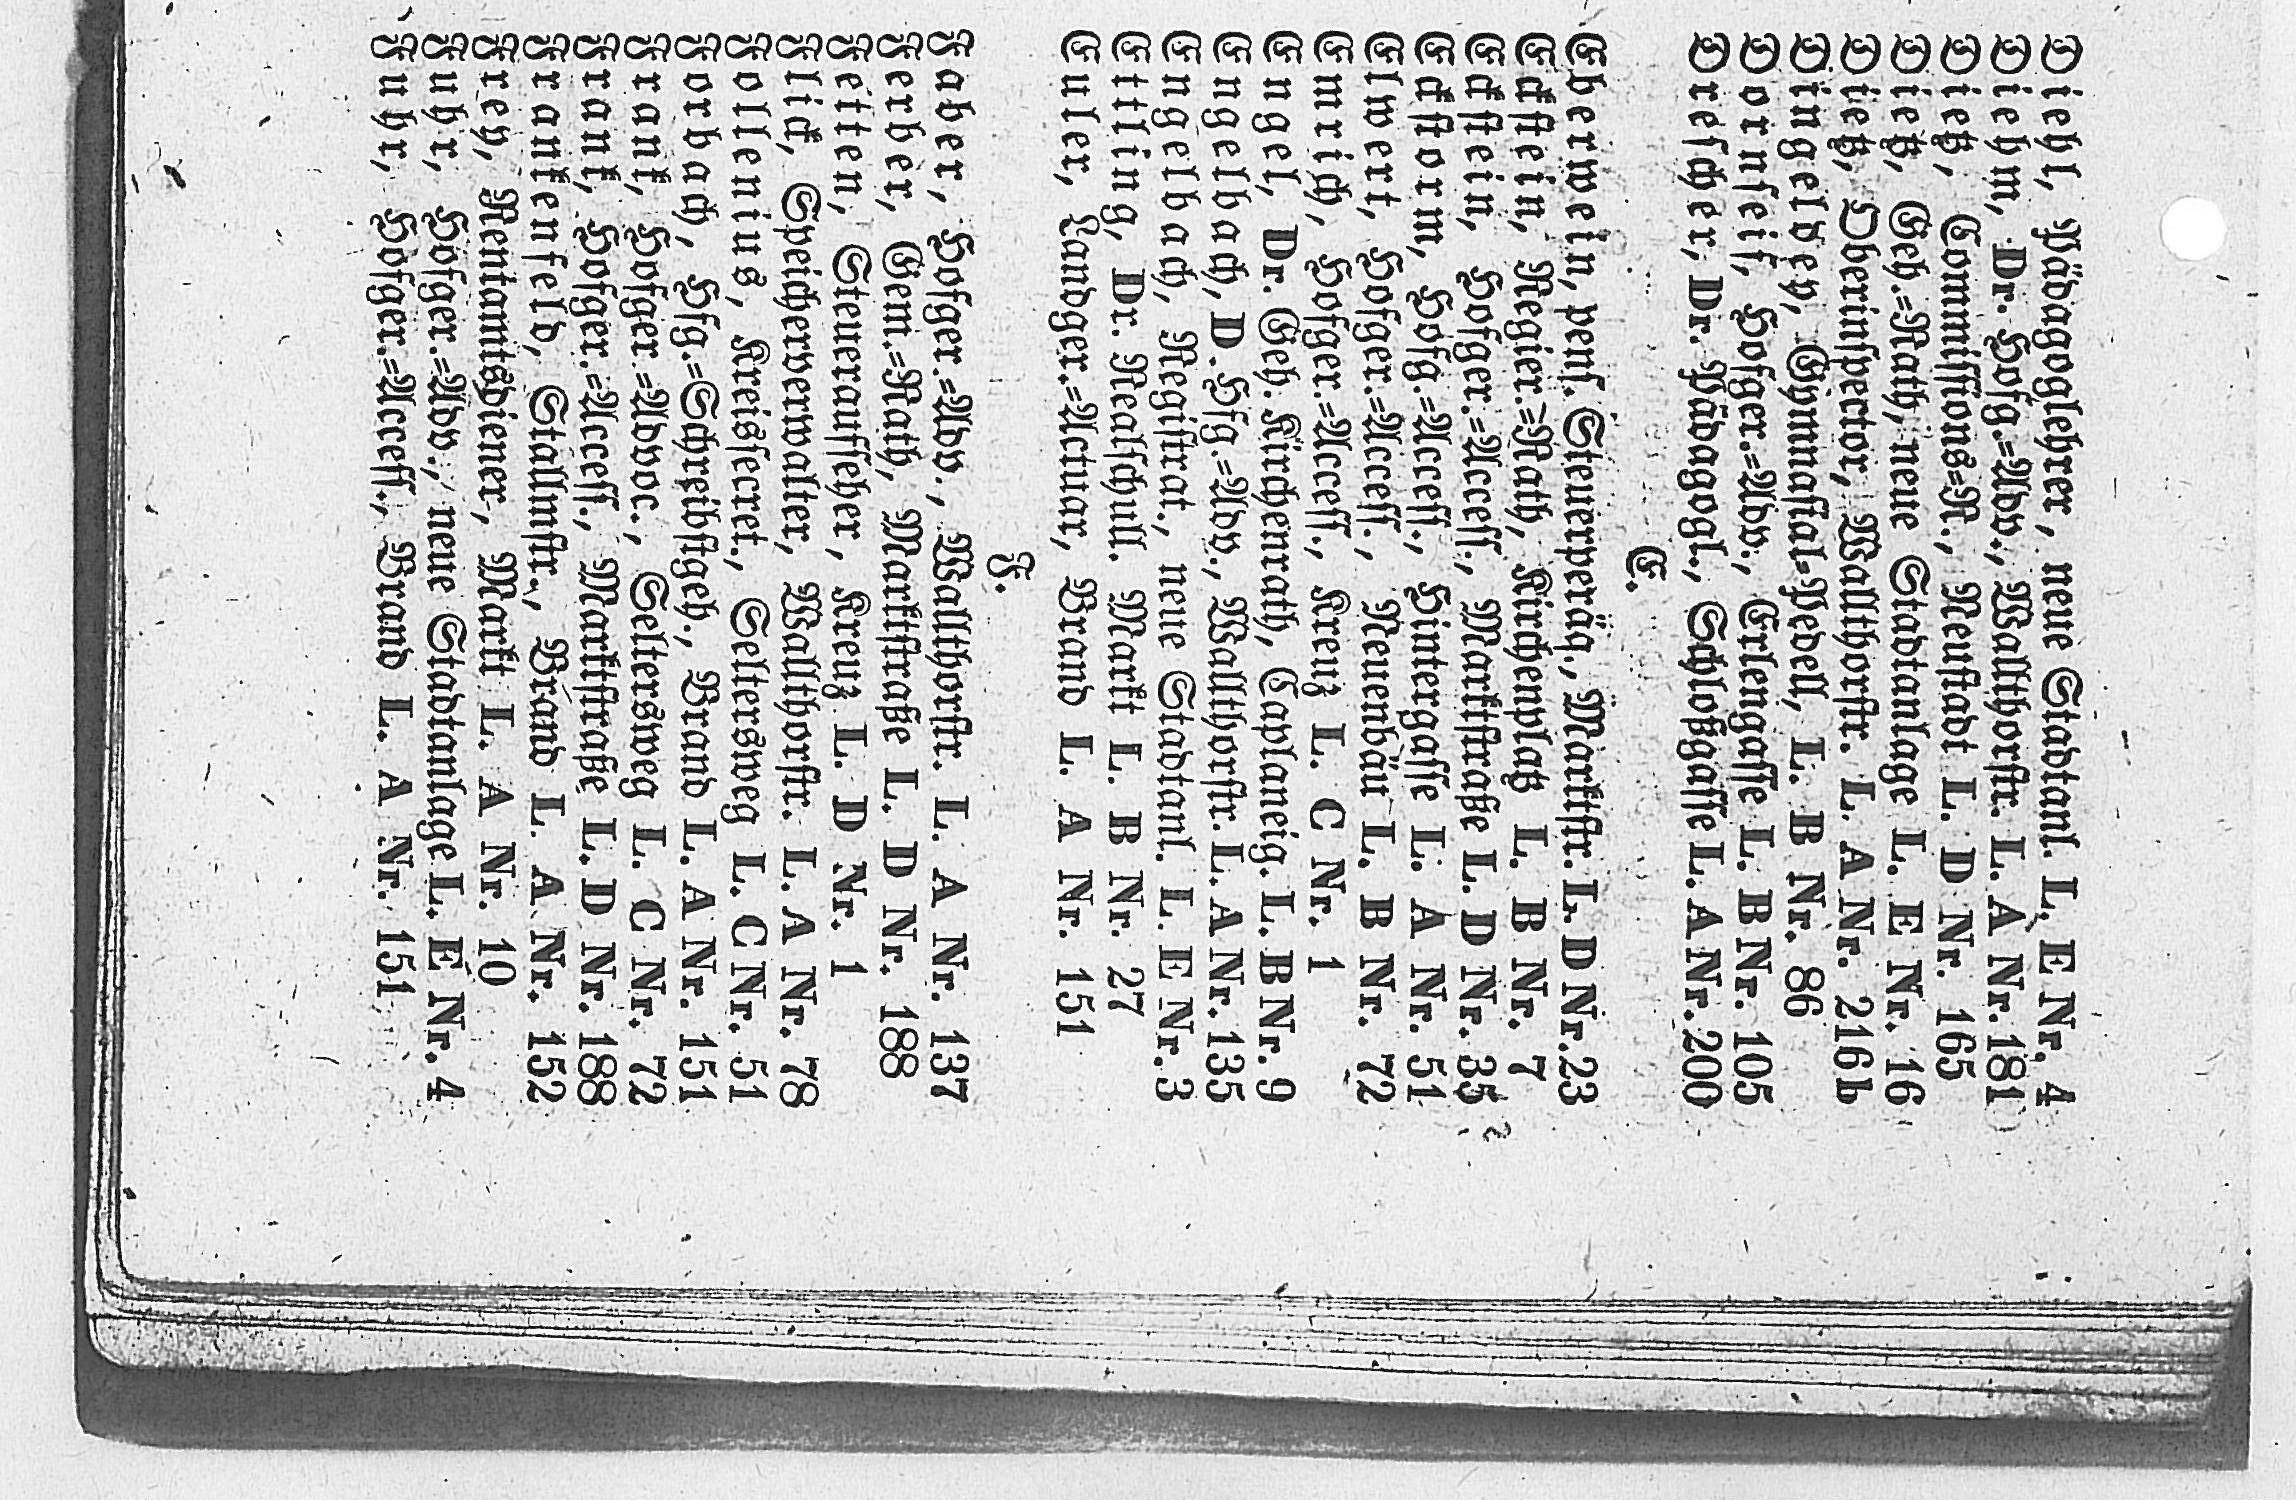 Diehl, Pädagoglehrer, neue Stadtanl. L. E Nr. 4
Diehm, Dr. Hofg.=Adv., Wallthorstr. L. A Nr. 181
Dietz, Commissions=R., Neustadt L. D Nr. 165
Dietz, Geh.=Rath, neue Stadtanlage L. E Nr. 16
Dietz, Oberinspector, Wallthorstr. L. A Nr. 216b
Dingeldey, Gymnasial=Pedell, L. B Nr. 86
Dornseif, Hofger.=Adv., Erlengasse L. B Nr. 105
Drescher, Dr. Pädagogl., Schloßgasse L. A Nr. 200
E.
Eberwein, pens. Steuerperäq., Marktstr. L. D Nr. 23
Eckstein, Regier.=Rath, Kirchenplatz L. B Nr. 7
Eckstein, Hofger.=Access., Marktstraße L. D Nr. 35
Eckstorm, Hofg.=Access., Hintergasse L. A Nr. 51
Elwert, Hofger.=Access., Neuenbäu L. B Nr. 72
Emrich, Hofger.=Access., Kreuz L. C Nr. 1
Engel, Dr. Geh. Kirchenrath, Caplaneig. L. B Nr. 9
Engelbach, D. Hfg.=Adv., Wallthorstr. L. A Nr. 135
Engelbach, Registrat., neue Stadtanl. L. E Nr. 3
Ettling, Dr. Realschull. Markt L. B Nr. 27
Euler, Landger.=Actuar, Brand L. A Nr. 151
F.
Faber, Hofger.=Adv., Wallthorstr. L. A Nr. 137
Ferber, Gem.=Rath, Marktstraße L. D Nr. 188
Fetten, Steueraufseher, Kreuz L. D Nr. 1
Flick, Speicherverwalter, Wallthorstr. L. A Nr. 78
Follenius, Kreissecret., Seltersweg L. C Nr. 51
Forbach, Hfg.=Schreibstgeh., Brand L. A Nr. 151
Frank, Hofger.=Advoc., Seltersweg L. C Nr. 72
Frank, Hofger.=Access., Marktstraße L. D Nr. 188
Frankenfeld, Stallmstr., Brand L. A Nr. 152
Frey, Rentamtsdiener, Markt L. A Nr. 10
Fuhr, Hofger.=Adv., neue Stadtanlage L. E Nr. 4
Fuhr, Hofger.=Access., Brand L. A Nr. 151